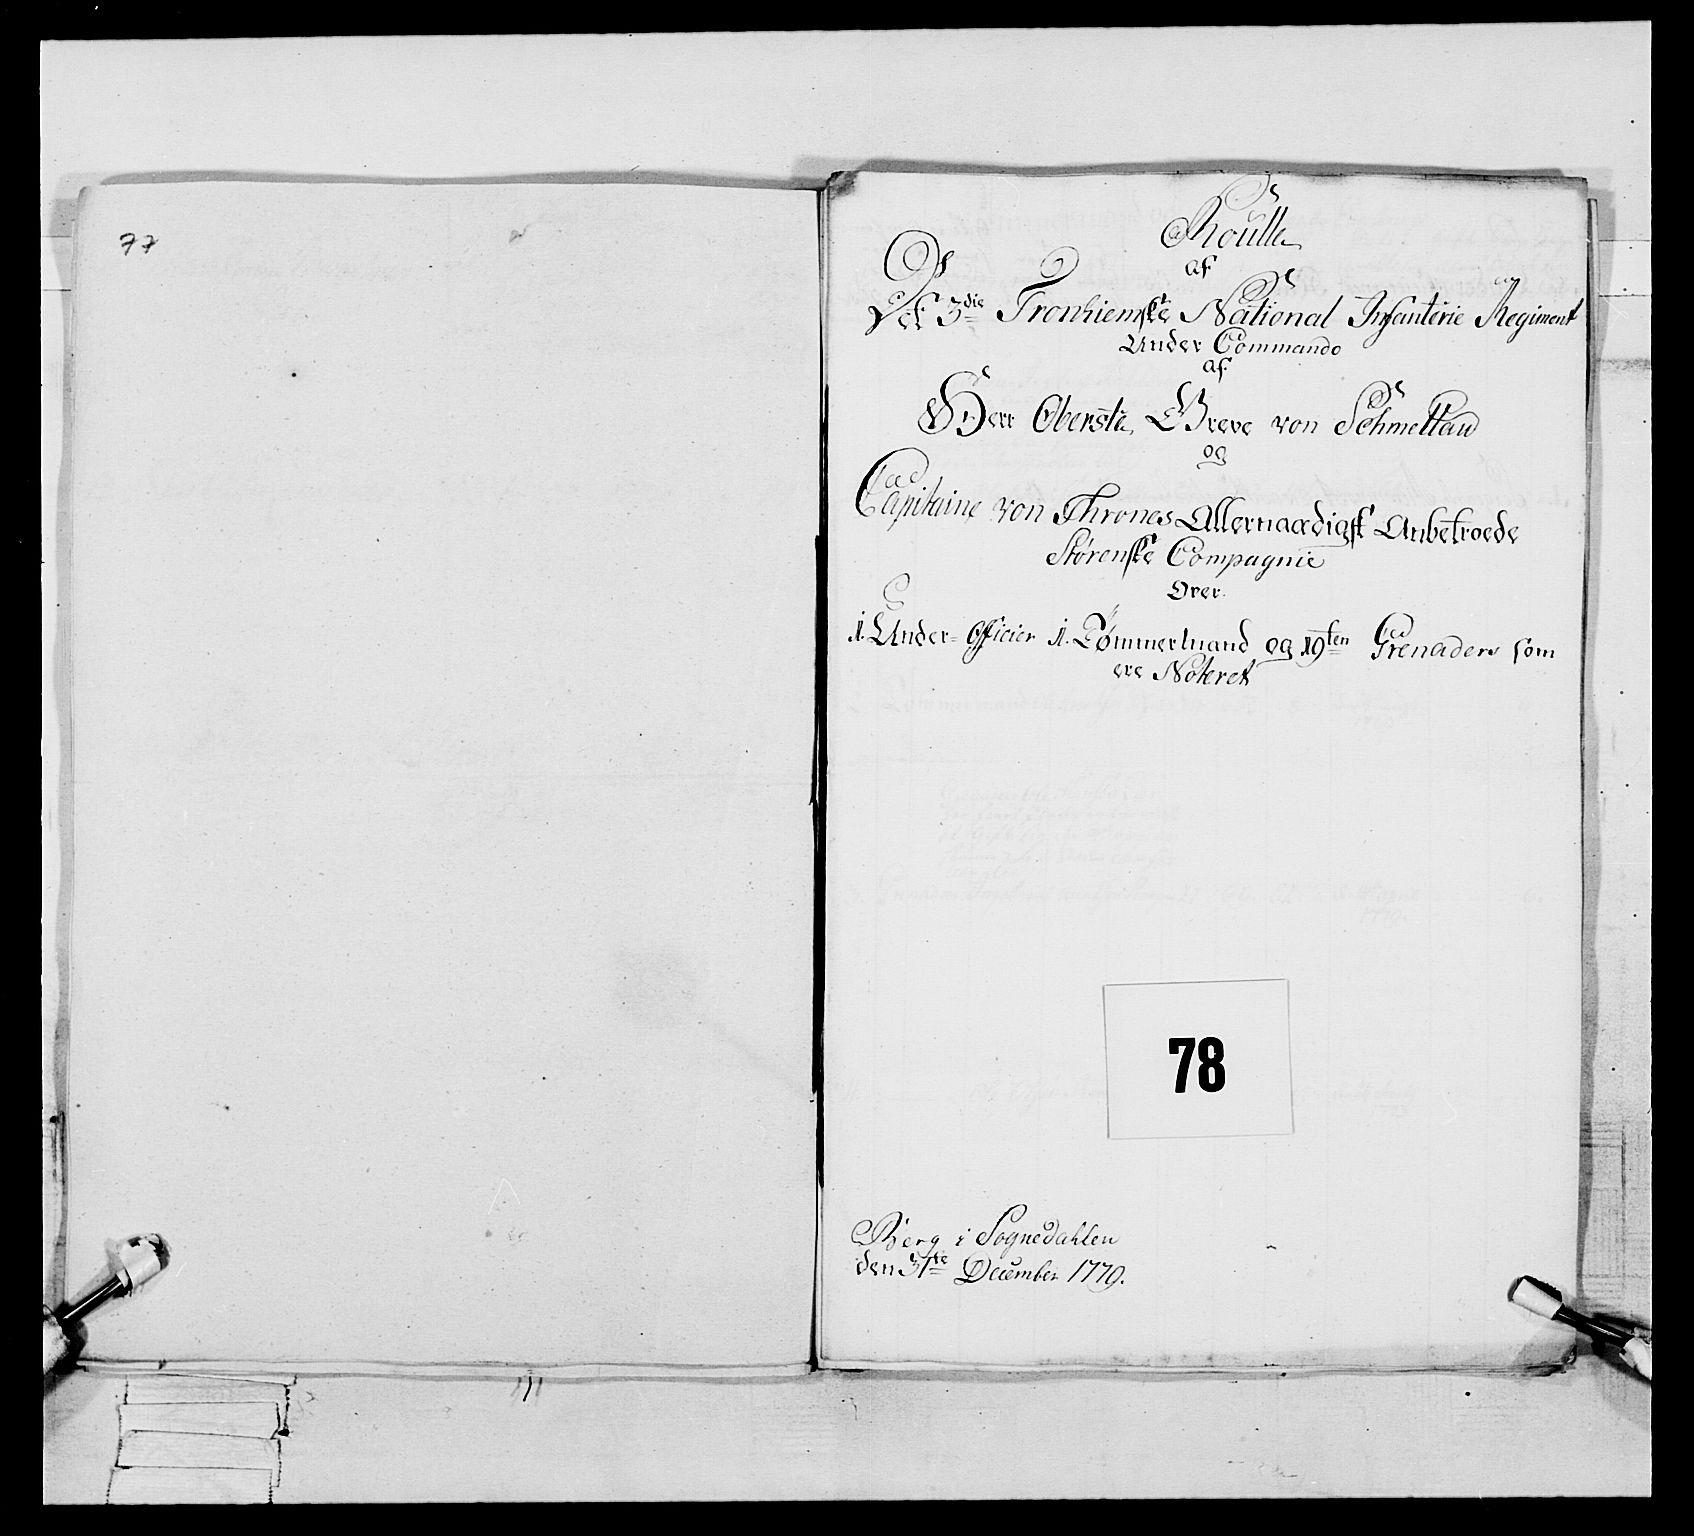 77
Roulle
af
Det 3die Tronhiemske National Infanterie Regiment
Under Commando
af
Herr Oberste Greve von Schmettau
og
Capitaine von Thrones Allernaadigst Anbetroede
Størenske Compagnie
Over
1. Under-Officier 1. Tømmermand og 19ten Grenaders som
ere Noteret
78
Berg i Sognedahlen
den 31te December 1779.